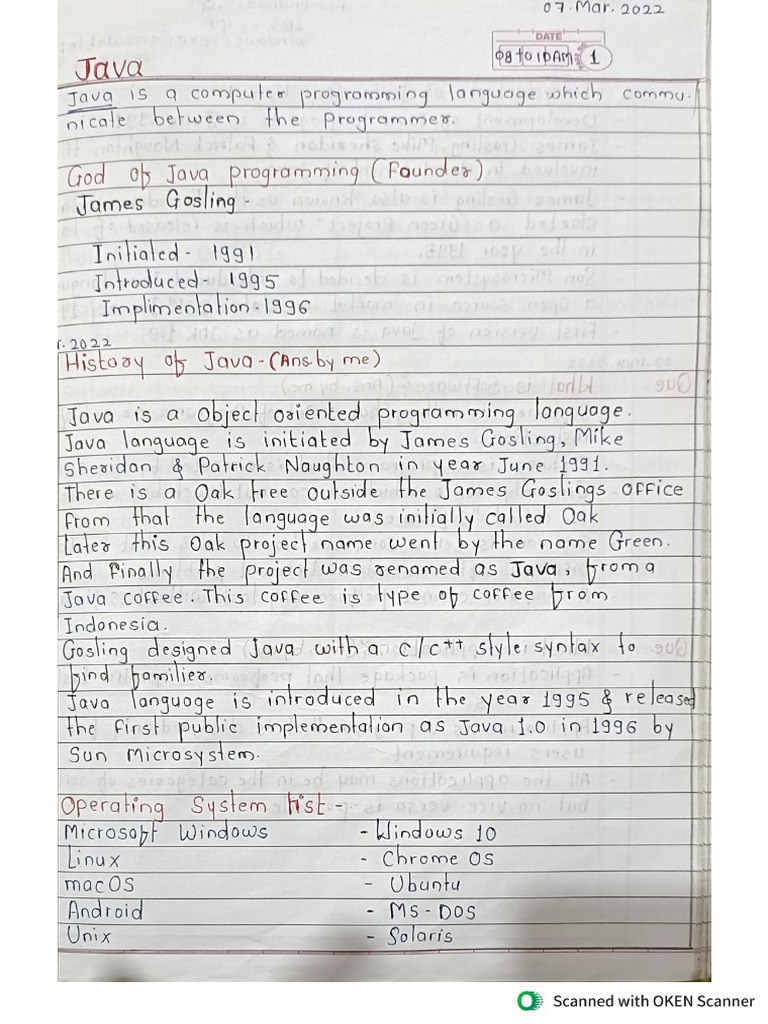 07. Mar. 2022
DATE
08 to 10 AM 1
Java
Java is a computer programming language which commu-
nicate between the programmer.
God of Java programming (Founder)
James Gosling -
Initiated - 1991
Introduced - 1995
Implimentation - 1996
r. 2022
History of Java - (Ans. by me)
Java is a Object oriented programming language.
Java language is initiated by James Gosling, Mike
Sheridan & Patrick Naughton in year June 1991.
There is a Oak tree outside the James Goslings office
from that the language was initially called Oak
Later this Oak project name went by the name Green.
And finally the project was renamed as Java, from a
Java coffee. This coffee is type of coffee from
Indonesia.
Gosling designed Java with a C/C++ style syntax to
find familier.
Java language is introduced in the year 1995 & released
the first public implementation as Java 1.0 in 1996 by
Sun Microsystem.
Operating System list -
Microsoft Windows - Windows 10
Linux - Chrome OS
macOS - Ubuntu
Android - MS-DOS
Unix - Solaris
Scanned with OKEN Scanner